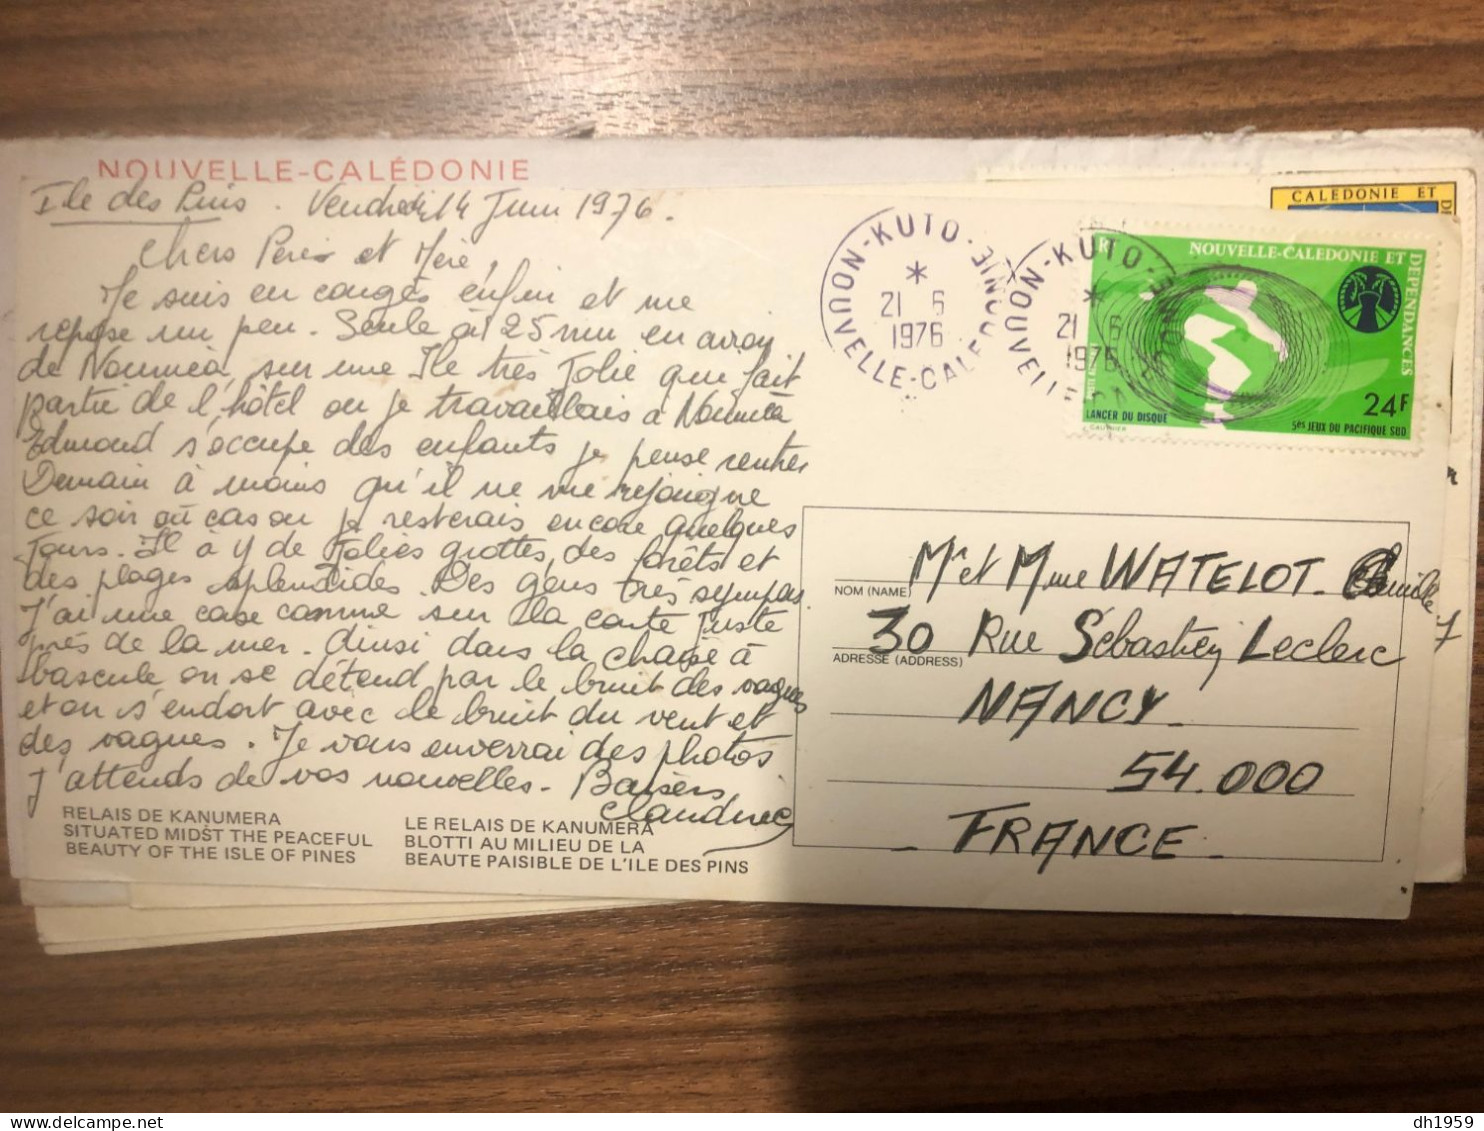 NOUVELLE-CALÉDONIE
Ile des Pins. Vendredi 14 Juin 1976.
Chers Père et Mère,
Je suis en congés enfin et me
repose un peu. Seule à 25 mn en avion
de Nouméa, sur une Ile très Jolie qui fait
partie de l'hôtel ou je travaillais à Nouméa
Edmond s'occupe des enfants je pense rentrer
Demain à moins qu'il ne me rejoigne
ce soir où cas ou je resterais encore quelques
Jours. Il à y de Jolies grottes, des forêts et
des plages splendides. Des gens très sympas.
J'ai une case comme sur la carte Juste
près de la mer. Ainsi dans la chaise à
bascule on se détend par le bruit des vagues
et on s'endort avec le bruit du vent et
des vagues. Je vous enverrai des photos
J'attends de vos nouvelles. Baisers
Claudine
RELAIS DE KANUMERA
SITUATED MIDST THE PEACEFUL
BEAUTY OF THE ISLE OF PINES
LE RELAIS DE KANUMERA
BLOTTI AU MILIEU DE LA
BEAUTE PAISIBLE DE L'ILE DES PINS
KUTO
NOUVELLE-CALEDONIE
21 6
1976
KUTO
21 6
1976
NOUVELLE-CALEDONIE ET
DEPENDANCES
LANCER DU DISQUE
GAUTHIER
24F
5es JEUX DU PACIFIQUE SUD
CALEDONIE ET
NOM (NAME)
Mr et Mme WATELOT. Camille
30 Rue Sébastien Leclerc
ADRESSE (ADDRESS)
NANCY
54.000
- FRANCE -
dh1959